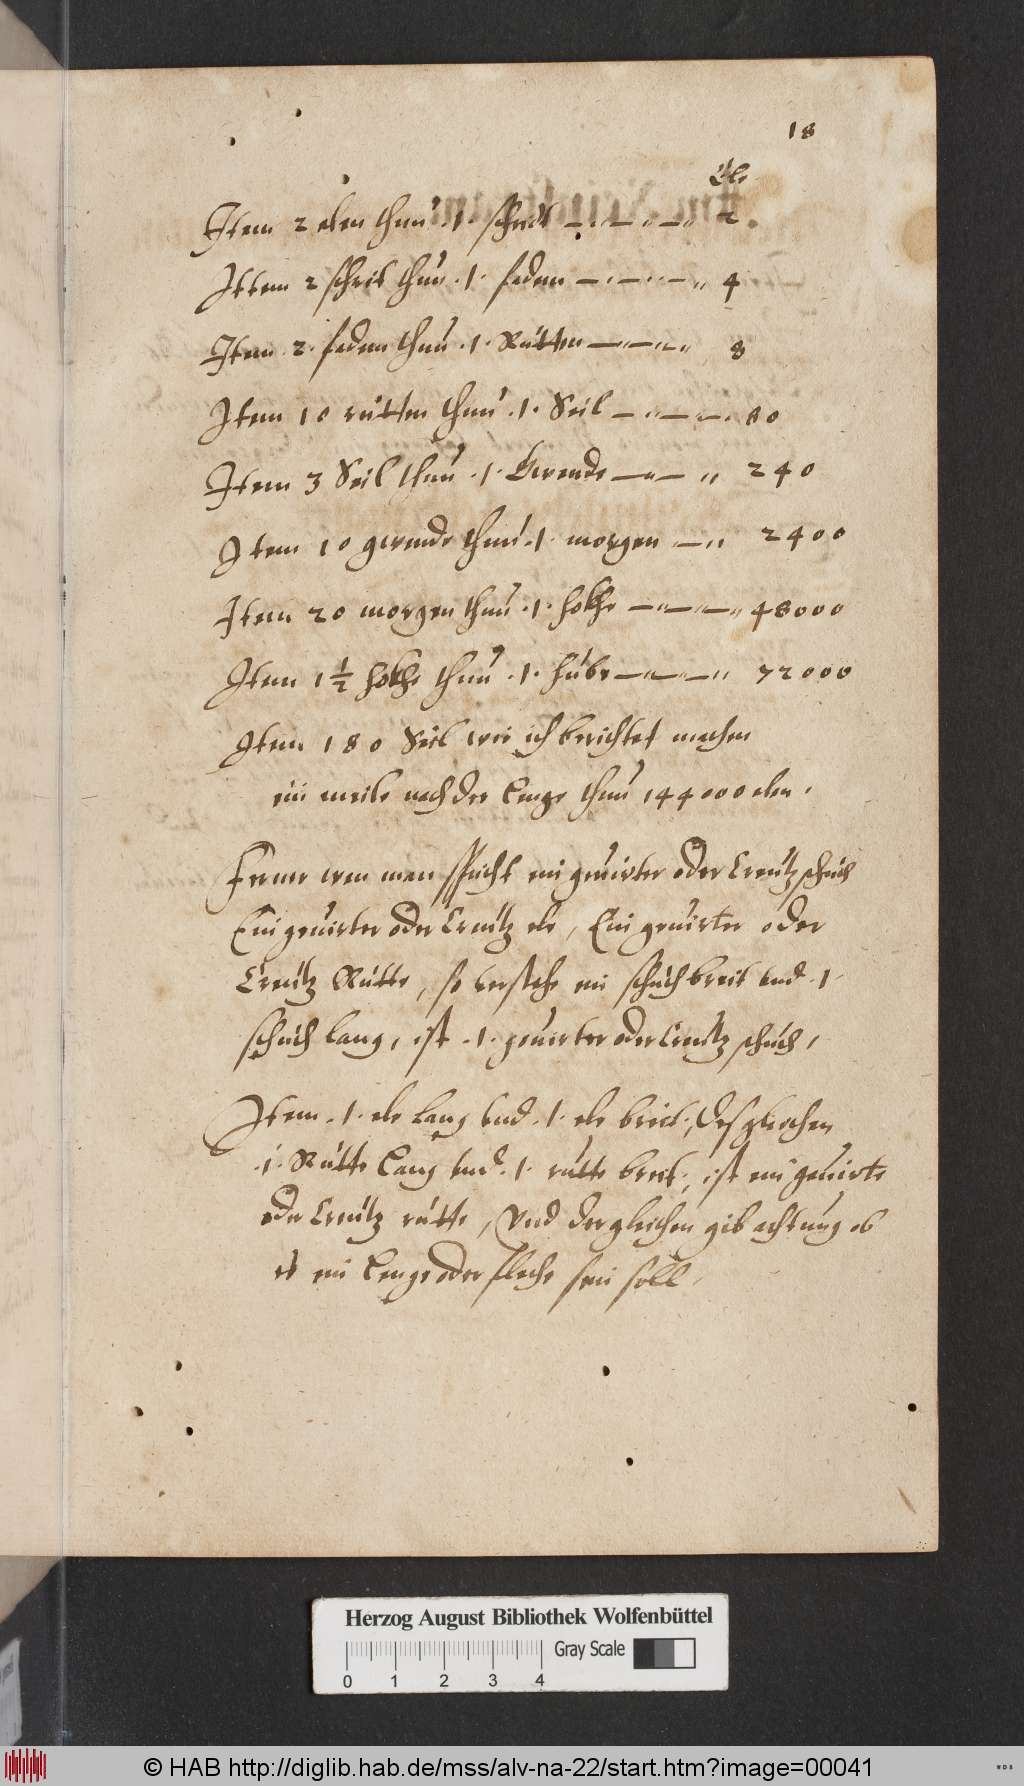 18
Ele
Item 2 elen thun .1. schrit — „ — „ — „ 2
Ittem 2 schrit thun .1. faden — „ — „ — „ 4
Item 2. faden thun .1. Rutten — „ — „ — „ 8
Item 10 rutten thun .1. Seil — „ — „ — „ 80
Item 3 Seil thun .1. Gwende — „ — „ 240
Item 10 gwende thun .1. morgen — „ 2400
Item 20 morgen thun .1. hokhe — „ — „ — „ 48000
Item 1 1/2 hokhe thun .1. hube — „ — „ — „ 72000
Item 180 Seil wie ich berichtet machen
ein meile nach der Lenge thun 144000 elen.
Ferner wen man spricht ein geuirter oder Creutz schuch
Ein geuirter oder Creutz ele, Ein geuirter oder
Creutz Rutte, so verstehe ein schuch breit vnd .1.
schuch lang, ist .1. geuirter oder Creutz schuch,
Item .1. ele lang vnd .1. ele breit, desgleichen
.1. Rutte Lang vnd .1. rutte breit, ist ein geuirte
oder Creutz rutte, Vnd dergleichen gib achtung ob
es ein Lenge oder fleche sein soll.
Herzog August Bibliothek Wolfenbüttel
Gray Scale
0 1 2 3 4
© HAB http://diglib.hab.de/mss/alv-na-22/start.htm?image=00041